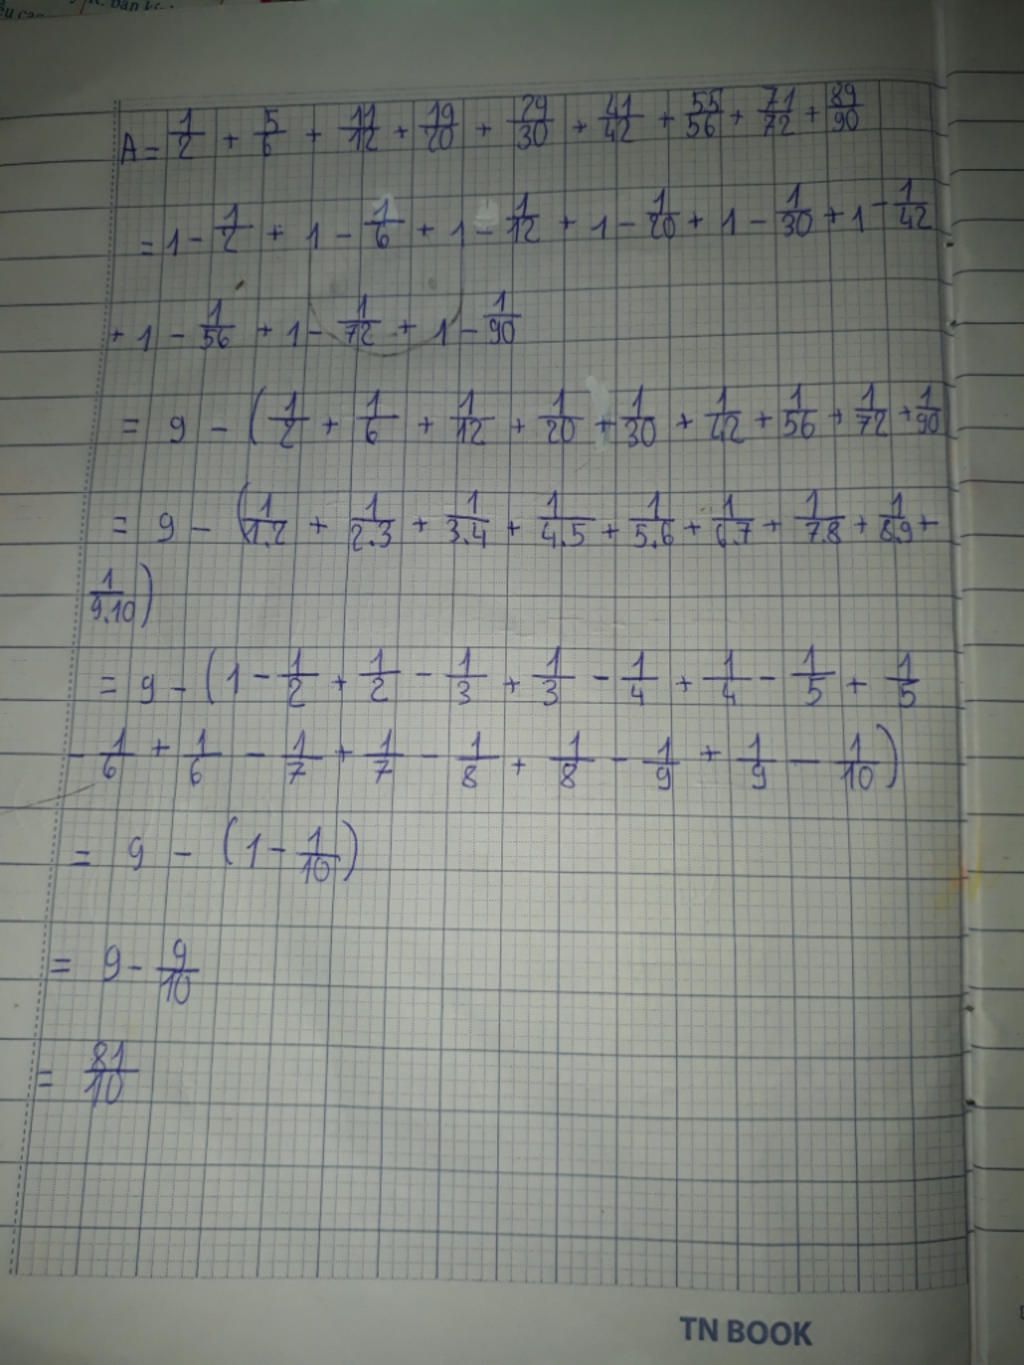 A = 1/2 + 5/6 + 11/12 + 19/20 + 29/30 + 41/42 + 55/56 + 71/72 + 89/90
= 1 - 1/2 + 1 - 1/6 + 1 - 1/12 + 1 - 1/20 + 1 - 1/30 + 1 - 1/42
+ 1 - 1/56 + 1 - 1/72 + 1 - 1/90
= 9 - (1/2 + 1/6 + 1/12 + 1/20 + 1/30 + 1/42 + 1/56 + 1/72 + 1/90
= 9 - (1/1.2 + 1/2.3 + 1/3.4 + 1/4.5 + 1/5.6 + 1/6.7 + 1/7.8 + 1/8.9 +
1/9.10)
= 9 - (1 - 1/2 + 1/2 - 1/3 + 1/3 - 1/4 + 1/4 - 1/5 + 1/5
- 1/6 + 1/6 - 1/7 + 1/7 - 1/8 + 1/8 - 1/9 + 1/9 - 1/10)
= 9 - (1 - 1/10)
= 9 - 9/10
= 81/10
TN BOOK